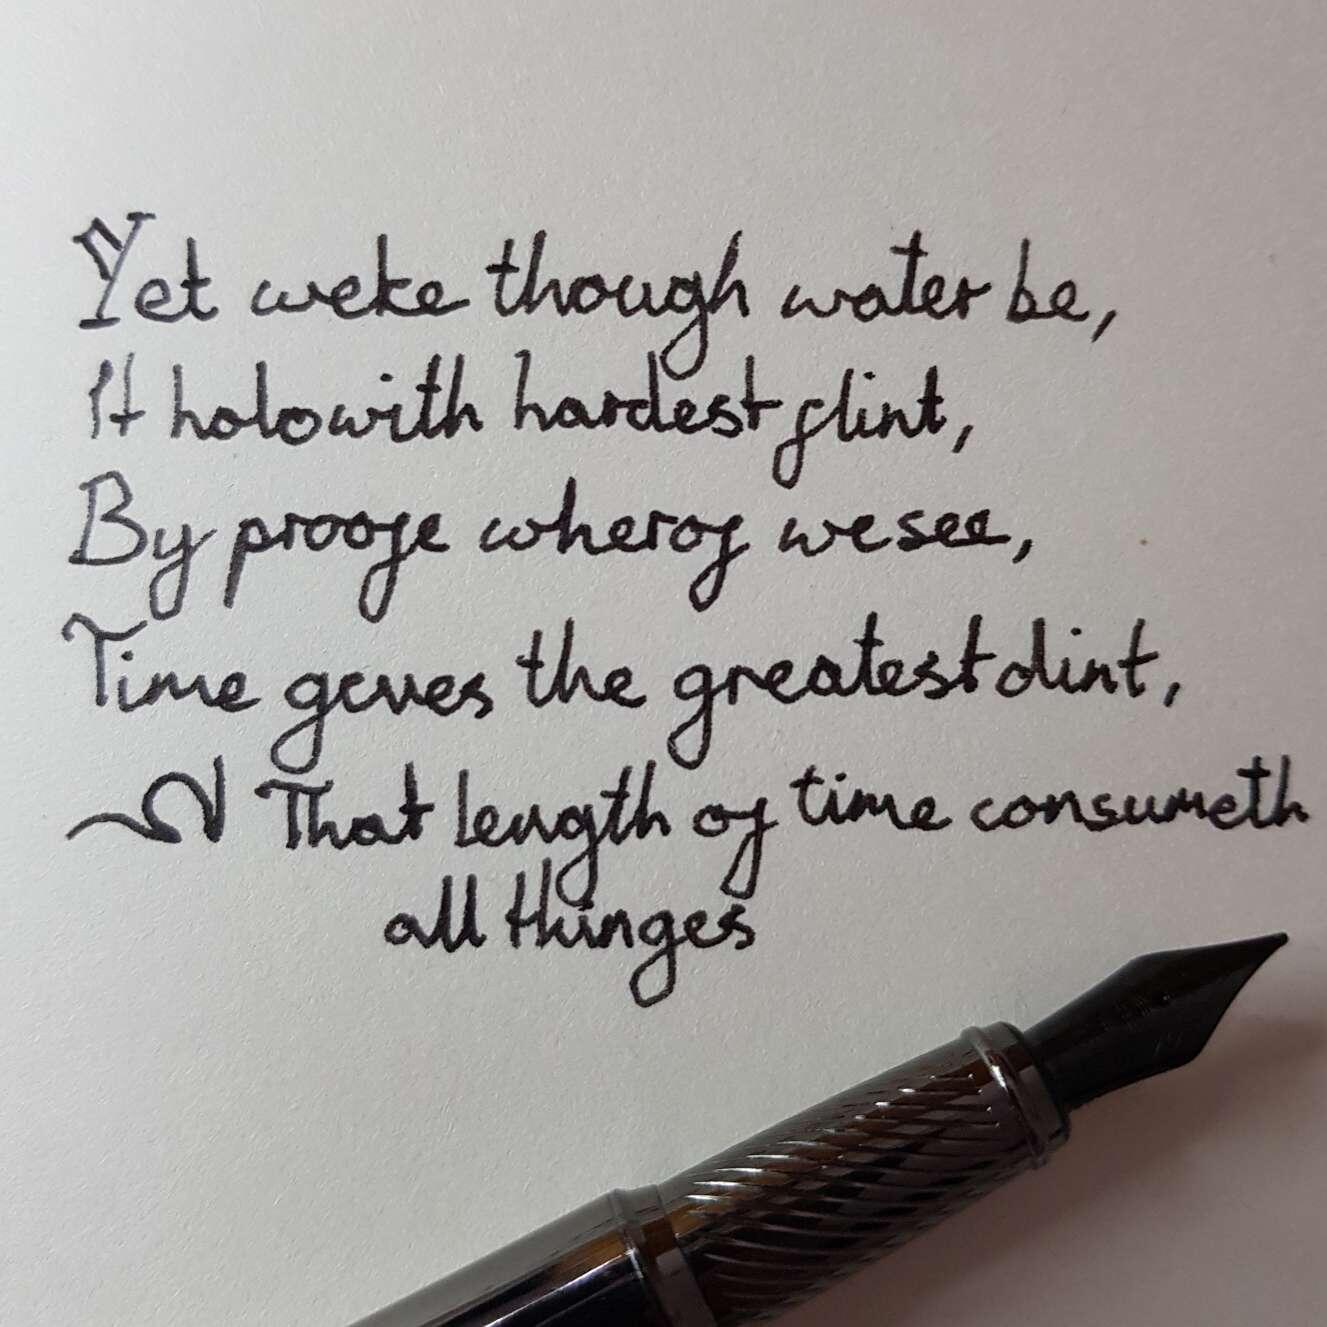 Yet weke though water be,
It holowith hardest flint,
By proofe wherof we see,
Time geves the greatest dint,
That length of time consumeth
all thinges